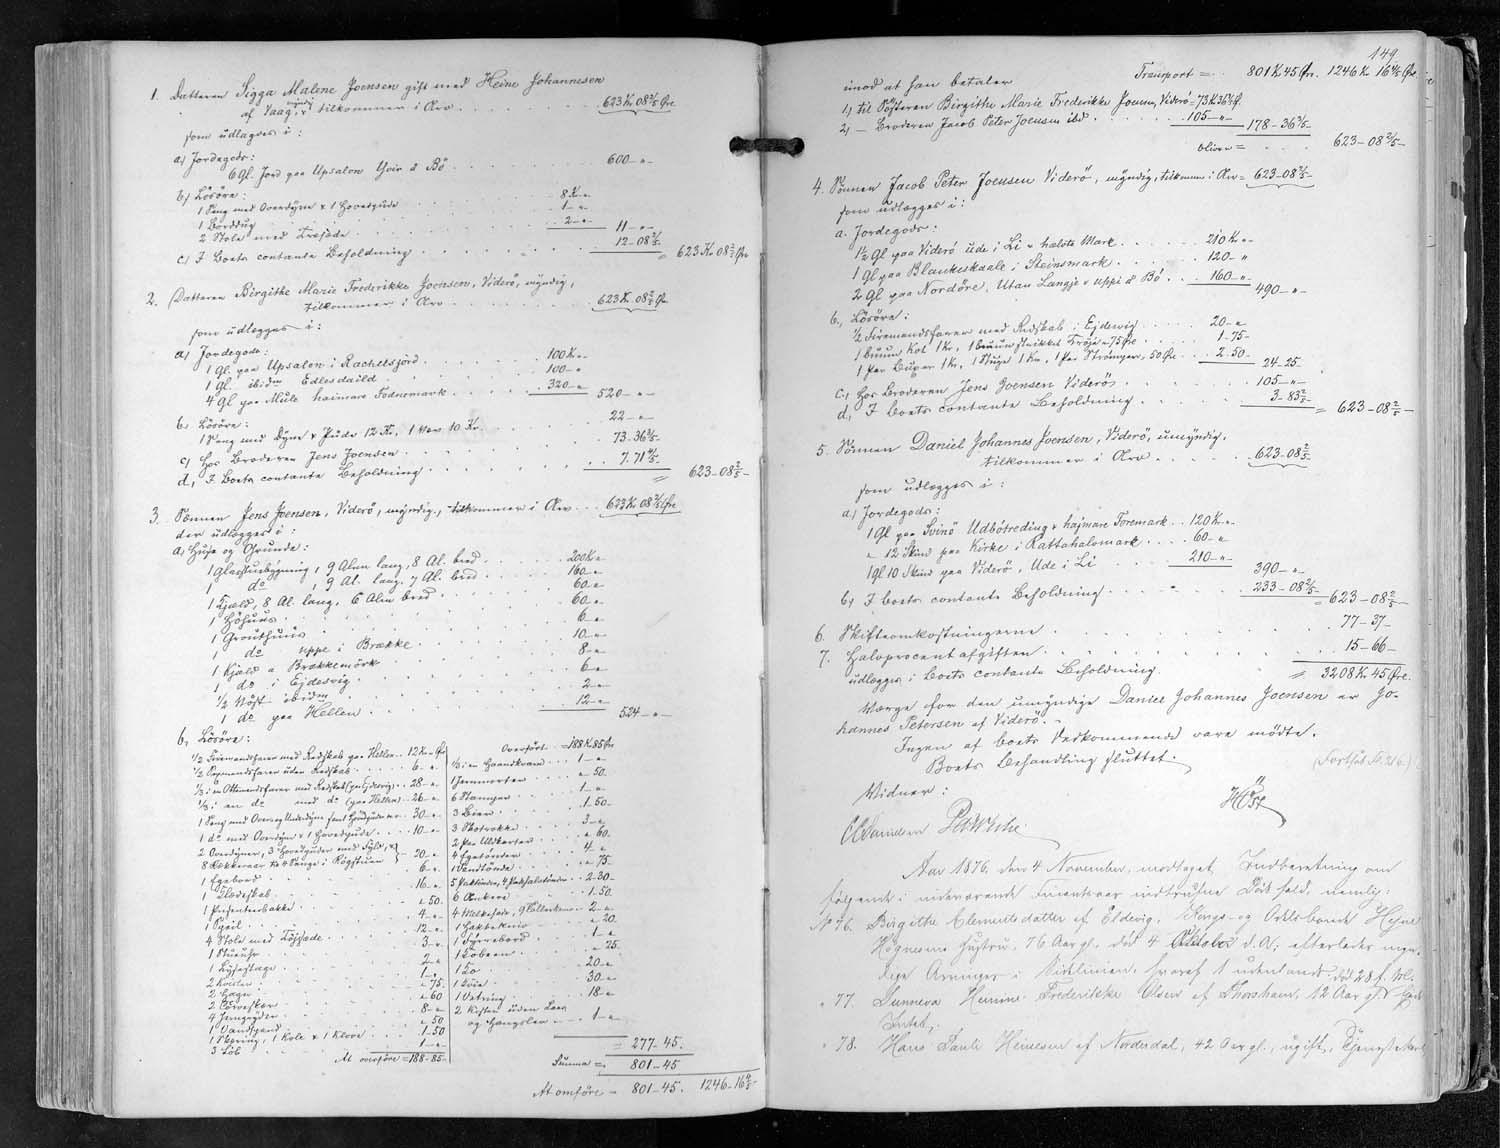 1. Datteren Sigga Malene Joensen gift med Heine Johannesen
af Vaag, myndig tilkommer i Arv 623 Kr 08 2/5 Øre
som udlægges i:
a) Jordegods:
6 Gl. Jord paa Upsalon Yvir á Bö 600 – "
b) Lösöre:
1 Seng med Overdyne & 1 Hovedpude 8 Kr "
1 Borddug 1 – "
2 Stole med Træsæde 2 – " 11 – "
c) I Boets contante Beholdning 12 – 08 2/5 = 623 Kr 08 2/5 Øre
2. Datteren Birgithe Marie Frederikke Joensen, Viderö, myndig,
tilkommer i Arv 623 Kr 08 2/5 Øre
som udlægges i:
a) Jordegods:
1 Gl. paa Upsalon i Rachelsjörd 100 Kr "
1 Gl. ibidm Edlesdaild 100 – "
4 Gl paa Mule haimare Födnemark 320 – " 520 – "
b. Lösöre:
1 Seng med Dyne & Pude 12 Kr, 1 Væv 10 Kr. 22 – "
c) hos Broderen Jens Joensen 73 – 36 3/5
d, I Boets contante Beholdning 7. 71 4/5 = 623 – 08 2/5
3. Sönnen Jens Joensen, Viderö, myndig, tilkommer i Arv 623 Kr 08 2/5 Øre
der udlægges i:
a, Huse og Grunde:
1 Glasstuebygning, 9 Alen lang, 8 Al. bred 200 Kr "
1 do , 9 Al. lang, 7 Al. bred 160 – "
1 Kjæld, 8 Al. lang, 6 Alen bred 60 – "
1 Höhuus 60 – "
1 Grouthuus 6 – "
1 do uppe i Brække 10 – "
1 Kjæld a Brækkemörk 8 – "
1 do i Ejdesvig 6 – "
1/2 Nöst ibidm 2 – "
1 do paa Hellen 12 – " 524 – "
b, Lösöre:
1/2 Firemandsfarer med Redskab paa Hellen 12 Kr " Ør
1/2 Sexmandsfarer uden Redskab 6 – "
1/3 i en Ottemandsfarer med Redskab (paa Ejdesvig) 28 – "
1/3 i en do med do (paa Hellen) 26 – "
1 Seng med Over og Underdyne samt Hovedpuder 30 – "
1 do med Overdyne & 1 Hovedpude 10 – "
2 Overdyner, 3 Hovedpuder med Fyld, &
8 til 4 Senge i Rögstuen 20 – "
1 Egebord 6 – "
1 16 – "
1 Præsenteerbakke " 50
1 Speil 4 – "
4 Stole med Töjsæde 12 – "
1 Stueuhr 3 – "
1 Lysestage 2 – "
2 1 – "
2 " 75
2 " 60
4 Jerngryder 8 – "
1 Vandspand " 50
1 , 1 & 1 Klove 1 – 50
3 Löb 1 – "
At overföre = 188 – 85
Overfört 188 Kr 85 Øre
1/3 i en Haandkværn 1 – "
1 Jernmorter " 50
6 Stamper 1 – "
3 Leier 1 – 50
3 Skotrokke 3 – "
2 Par Uldkarter " 60
4 Egetönder 4 – "
1 Vandtönde " 75
5 , 4 2 – 30
6 Ankere 1 – 50
4 Melkefade, 9 2 – "
1 Hakkekniv " 20
1 Fyrrebord 1 – "
1 " 25
1 Ko 20 – "
1 Kvie 30 – "
1 Vetring 18 – "
2 Kister uden Laas
og Hængsler 1 – "
= 277 – 45
Summa = 801 – 45
At omföre = 801 – 45. 1246 – 16 4/5
149
Transport = 801 Kr 45 Øre. 1246 Kr 16 4/5 Øre
imod at han betaler
1, til Sösteren Birgithe Marie Frederikke Joensen, Viderö = 73 Kr 36 3/5 Ø.
2, – Broderen Jacob Peter Joensen ibd 105 – " 178 – 36 3/5
bliver = 623 – 08 2/5 –
4. Sönnen Jacob Peter Joensen Viderö, myndig, tilkommer i Arv = 623 – 08 2/5
som udlægges i:
a. Jordegods:
1½ Gl paa Viderö ude i Li & hælste Mark 210 Kr "
1 Gl paa Blankeskaale i Steinsmark 120 – "
2 Gl paa Nordöre, Utan Langje & uppi á Bö 160 – " 490 – "
b., Lösöre:
½ Firemandsfarer med Redskab i Ejdevig 20 – "
1 bruun Kol 1 Kr, 1 bruun strikket Tröje = 75 Øre 1 – 75
1 Par Buxer 1 Kr, 1 Stuge 1 Kr, 1 Par Strömper, 50 Øre 2. 50 24 – 25
c, hos Broderen Jens Joensen Viderö 105 – "
d, I Boets contante Beholdning 3 – 83 2/5 = 623 – 08 2/5 –
5. Sönnen Daniel Johannes Joensen, Viderö, umyndig,
tilkommer i Arv 623 – 08 2/5
som udlægges i:
a, Jordegods:
1 Gl paa Svinö Udbötreding & hajmare Toremark 120 Kr "
" 12 Skind paa Kirke i Rattahalsmark 60 – "
1 Gl 10 Skind paa Viderö, Ude i Li 210 – " 390 – "
b, I Boets contante Beholdning 233 – 08 2/5 = 623 – 08 2/5
6. Skifteomkostningerne 77 – 37 –
7. Halvprocentafgiften 15 – 66 –
udlægges i Boets contante Beholdning = 3208 Kr 45 Øre.
Værge for den umyndige Daniel Johannes Joensen er Jo-
hannes Petersen af Viderö. –
Ingen af Boets Vedkommende vare mödte.
Boets Behandling sluttet.
(Fortsat Fol. 216.)
Vidner: HÖst
Aar 1876, den 4 November, modtaget Indberetning om
fölgende i indeværende Finantsaar indtrufne Dödsfald, nemlig:
No 76. Birgithe Clementsdatter af Eldevig, Kongs- og Odelsbonde Hejne
Högnesens Hustru, 76 Aar gl. död 4 Oktober d. A; efterlader myn-
dige Arvinger i Sidelinien, hvoraf 1 udenlands
" 77. Sunneva Hemme Frederikke Olsen af Thorshavn, 12 Aar gl.
Intet.
" 78. Hans Pauli Heinesen af Norderdal, 42 Aar gl., ugift,